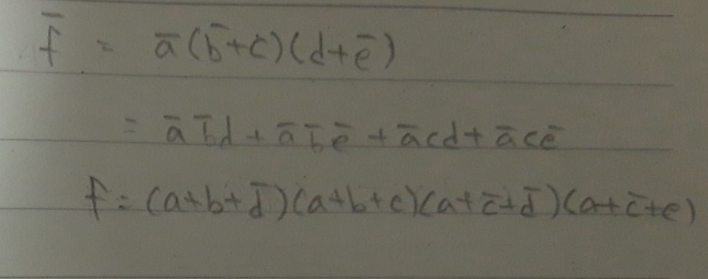 f̅ = a̅(b̅+c)(d+e̅)
= a̅b̅d+a̅b̅e̅+a̅cd+a̅ce̅
f=(a+b+d̅)(a+b+e)(a+c̅+d̅)(a+c̅+e)